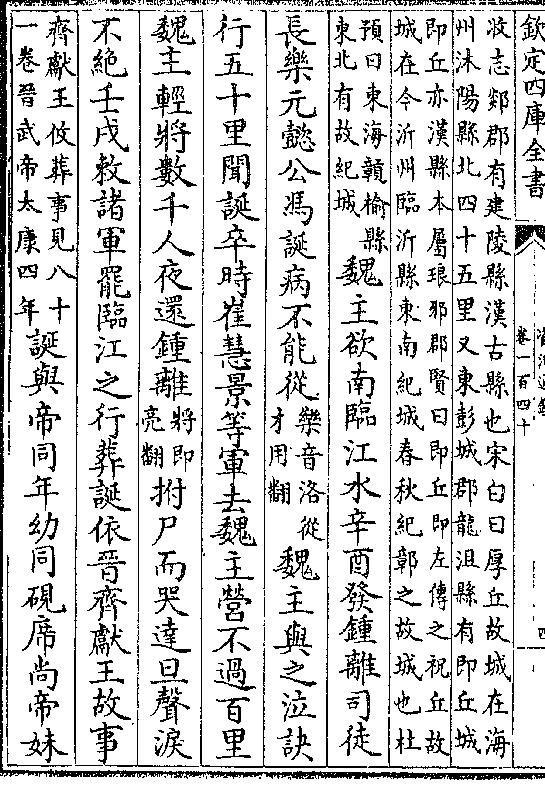 欽定四庫全書
資治通鑑
卷一百四十
四
收志郯郡有建陵縣漢古縣也宋白曰厚丘故城在海
州沭陽縣北四十五里又東彭城郡龍沮縣有即丘城
即丘亦漢縣本屬琅邪郡賢曰即丘即左傳之祝丘故
城在今沂州臨沂縣東南紀城春秋紀鄣之故城也杜
預曰東海贛榆縣
東北有故紀城
魏主欲南臨江水辛酉發鍾離司徒
長樂元懿公馮誕病不能從
樂音洛從
才用翻
魏主與之泣訣
行五十里聞誕卒時崔慧景等軍去魏主營不過百里
魏主輕將數千人夜還鍾離
將即
亮翻
拊尸而哭達旦聲淚
不絶壬戌敕諸軍罷臨江之行葬誕依晉齊獻王故事
齊獻王攸葬事見八十
一卷晉武帝太康四年
誕與帝同年幼同硯席尚帝妹